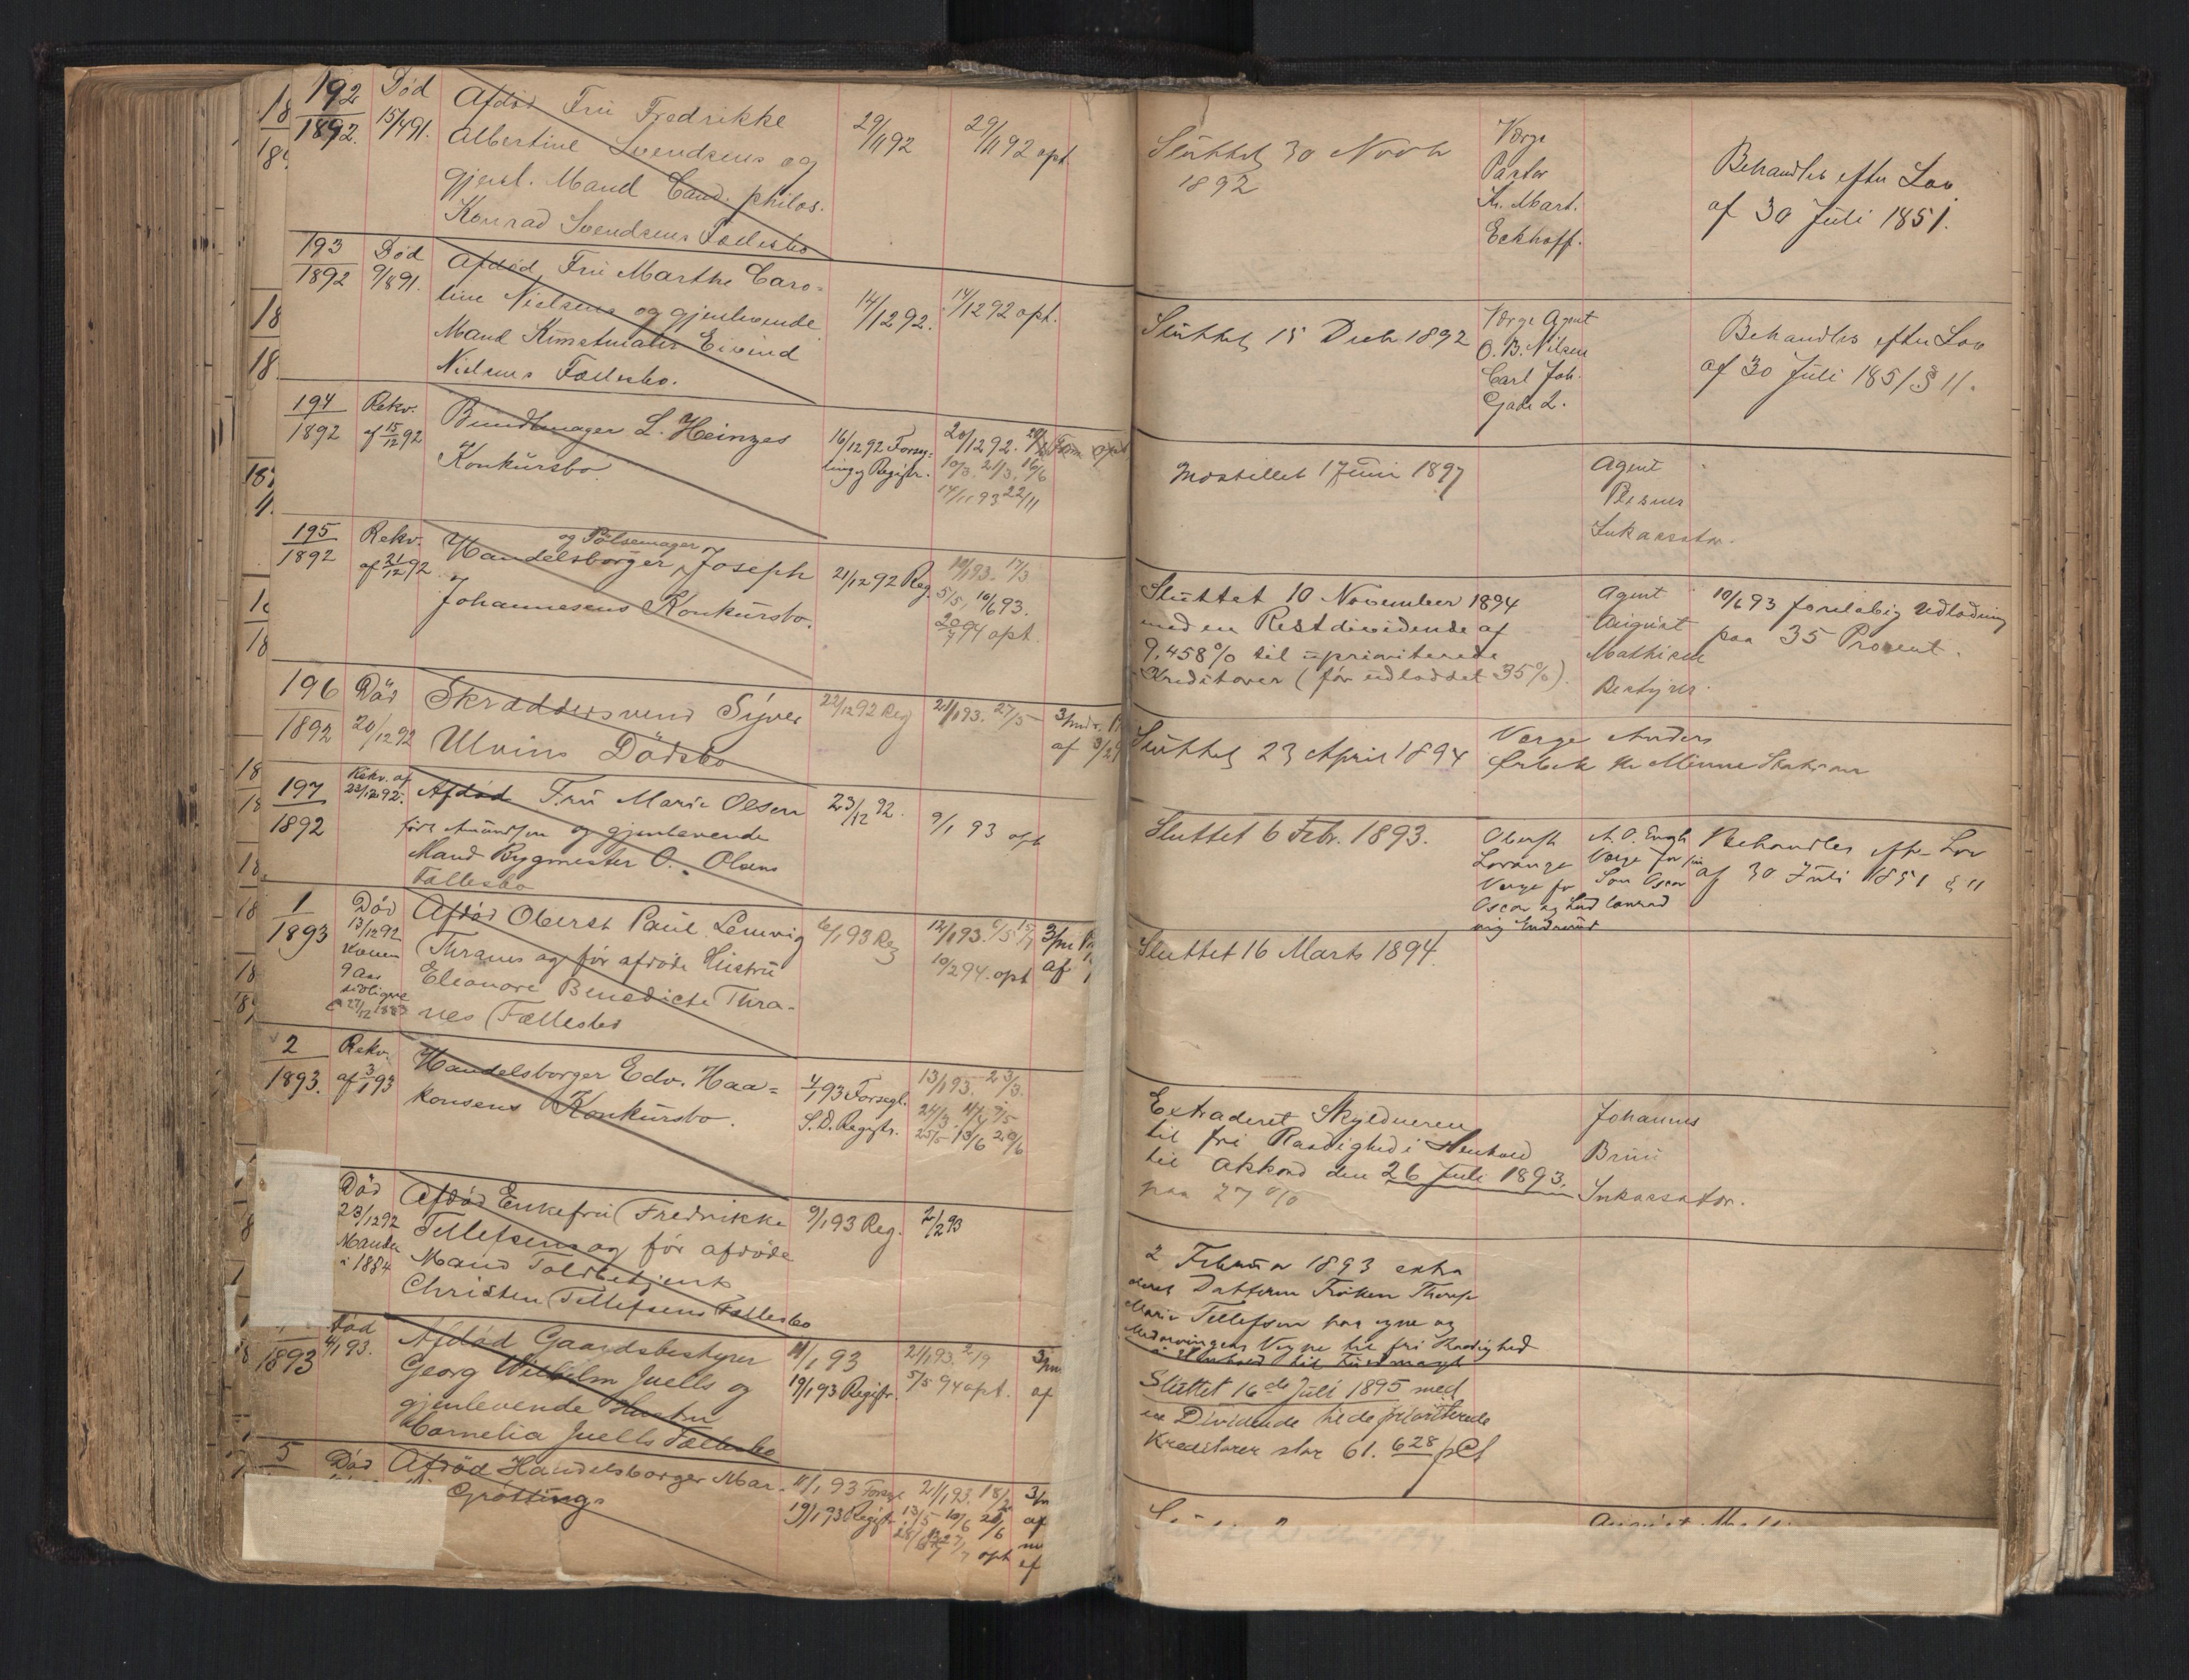 192
1892.
Død
15/4 91.
Afdød Frü Fredrikke
Albertine Svendsens og
gjenl. Mand Cand. philos.
Konrad Svendsens Fællesbo
29/11 92
29/11 92 opt.
Slüttet 30 Novbr
1892
Værge
Pastor
Kr. Mart.
Eckhoff.
Behandles efter Lov
af 30 Jüli 1851.
193
1892
Død
9/8 91.
Afdød Frü Marthe Caro-
line Nielsens og gjenlevende
Mand Künstmaler Eivind
Nielsens Fællesbo.
14/12 92.
14/12 92 opt.
Slüttet 15 Decbr 1892
Værge Agent
O. B. Nilsen
Carl Joh.
Gade 2.
Behandles efter Lov
af 30 Jüli 1851 § 11.
194
1892
Rekv.
af 15/12 92
Bündtmager L. Heinzes
Konkürsbo.
16/12 92 Forseg-
ling og Registr.
20/12 92.
10/3. 21/3. 16/6
14/11 93 22/11
Indstillet 1 Jüni 1897
Agent
Inkassator.
195
1892
Rekv.
af 21/12 92
og Pölsemager
Handelsborger, Joseph
Johannesens Konkürsbo.
21/12 92 Reg.
10/1 93. 17/3
5/5, 10/6 93.
20/7 94 opt.
Slüttet 10 November 1894
med en Restdividende af
9,458% til üprioriterede
Kreditorer (før üdloddet 35%).
Agent
Aügüst
Mathisen
Bestyrer.
10/6 93 foreløbig Udlodning
paa 35 Procent.
196
1892
Död
20/12 92
Skræddersvend Syver
Ulvins Dödsbo
22/12 92 Reg
21/1 93. 27/5
3 mdr.
af
Slüttet 23 April 1894
Værge Anders
197
1892
Rekv. af
23/12 92.
Afdöde Frü Marie Olsen
født Amündsen og gjenlevende
Mand Bygmester O. Olsens
Fællesbo
23/12 92.
9/1 93 opt
Sluttet 6 Febr. 1893.
Oberst
Lorange
Værge for
Oscar og
A. O. Engh
Værge for sin
Søn Oscar
Conrad
Behandles efter Lov
af 30 Jüli 1851 § 11
1
1893
Död
13/12 92
Konen
9 Aar
tidligere
27/12 1883
Afdød Oberst Paül Lemvig
Thranes og før afdøde Hüstrü
Eleonore Benedicte Thra-
nes Fællesbo
6/1 93 Reg
12/1 93. 6/5 15/7
10/2 94. opt
3 m
af
Sluttet 16 Marts 1894.
2
1893.
Rekv.
af 3/1 93
Handelsborger Edv. Haa-
konsens Konkürsbo.
4/1 93 Forsegl.
S. D. Registr.
13/1 93. 23/3.
24/3. 11/4 9/5
25/5 13/6 20/6
Extraderet Skyldneren
til fri Raadighed i Henhold
til Akkord den 26 Juli 1893.
paa 27%
Johannes
Brün
Inkassator.
Död
23/12 92
Manden
i 1884
Afdød Enkefrü Fredrikke
Tellefsens og før afdøde
Mand Toldbetjent
Christen Tellefsens Fællesbo
9/1 93 Reg.
2/2 93
2 Februar 1893 extra
deret Datteren Frøken Thora
Marie Tellefsen paa egne og
Medarvingers Vegne til fri Raadighed
i Henhold til Füldmagt
1893
Död
4/1 93.
Afdød Gaardsbestyrer
Georg Wilhelm Juells og
gjenlevende Hustru
Cornelia Juells Fællesbo
11/1 93
19/1 93 Registr.
21/1 93. 2/9
5/5 94 opt.
3 m
af
Slüttet 16de Jüli 1895 med
en Dividende til de prioriterede
Kreditorer stor 61.628 pCt
5
Död
Afdöd Handelsborger Mar-
Gröttings
11/1 93 Forsegl
19/1 93 Registr.
21/1 93. 18/2
13/5 10/6 20/6
opt
3 m
af